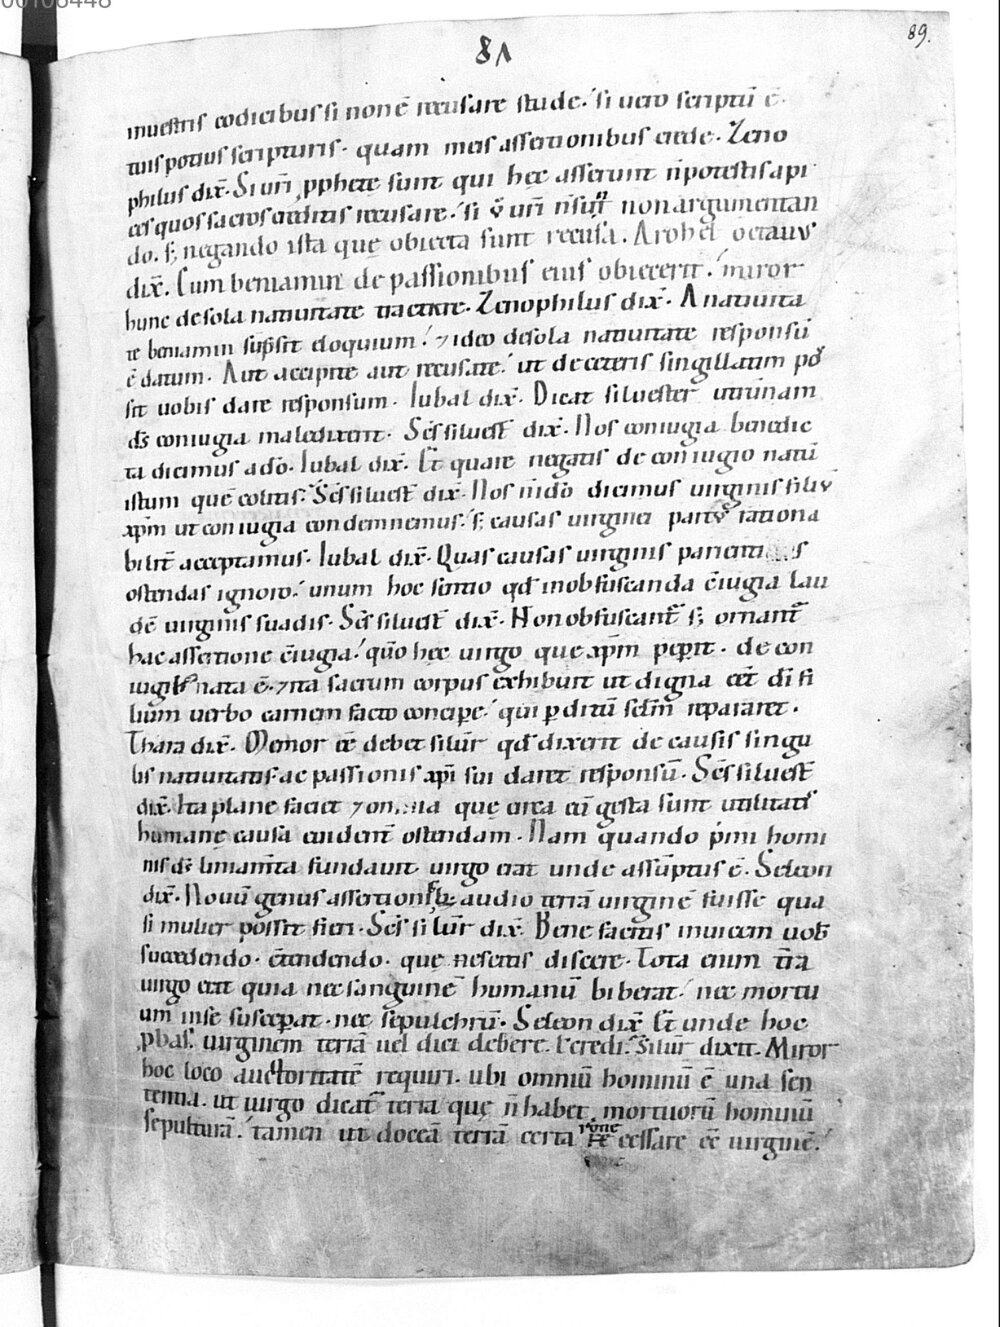 00106448
89.
81
inuestris codicibus si non ē recusare stude. si uero scriptū ē.
tuis potius scripturis. quam meis assertionibus crede. Zeno
philus dix̄. Si urī ꝓphete sunt qui hęc asserunt n̄ potestis api
ces quos sacros creditis recusare. si ū urī n̄ sunt non argumentan
do. s; negando ista quę obiecta sunt recusa. Arohel octauus
dix̄. Cum beniamin de passionibus eius obiecerit. miror
hunc de sola natiuitate tractare. Zenophilus dix̄. A natiuita
te beniamin sūpsit eloquium. ⁊ ideo de sola natiuitate responsū
ē datum. Aut accipite aut recusate. ut de ceteris singillatim pos
sit uobis dare responsum. Iubal dix̄. Dicat siluester utrūnam
dſ coniugia maledixerit. Scſ siluest̄ dix̄. Nos coniugia benedic
ta dicimus a dō. Iubal dix̄. Et quare negatis de coniugio natū
istum quē colitis. Scſ siluest̄ dix̄. Nos n̄ idō dicimus uirginis filiū
xp̄m ut coniugia condemnemus. s; causas uirginei partus rationa
bilit̄ acceptamus. Iubal dix̄. Quas causas uirginis parienti
ostendas ignoro. unum hoc sentio qđ in obfuscanda c̄iugia lau
dē uirginis suadis. Scſ siluest̄ dix̄. Non obfuscant̄ s; ornant̄
hac assertione c̄iugia. quō hęc uirgo que xp̄m peꝑit. de con
iugibꝰ nata ē. ⁊ ita sacrum corpus exhibuit ut digna eēt dī fi
lium uerbo carnem facto concipe. qui ꝑditū sclm̄ repararet.
Thara dix̄. Memor eē debet siluē̄r qđ dixerit de causis singu
lis natiuitatis ac passionis xp̄i sui daret responsū. Scſ siluest̄
dix̄. Ita plane faciet ⁊ quę circa eū gesta sunt utilitatis
humanę causa euident̄ ostendam. Nam quando p̄mi homi
nis dſ liniam̄ta fundauit uirgo erat unde assūptus ē. Seleon
dix̄. Nouū genus assertionis audio terrā uirginē fuisse qua
si mulier posset fieri. Scſ siluē̄r dix̄. Bene facitis inuicem uob
succedendo. c̄tendendo. quę nescitis discere. Tota enim t̄ra
uirgo erat quia nec sanguinē humanū biberat. nec mortu
um in se susceꝑat. nec sepulchrū. Seleon dix̄ Et unde hoc
ꝓbas. uirginem terrā uel dici debere. l credi. siluē̄r dixit. Miror
hoc loco auctoritatē requiri. ubi omniū hominū ē una sen
tentia. ut uirgo dicat̄ terra quę n̄ habet mortuorū hominū
sepulturā. tamen ut doceā terrā certa rōne cessare eē uirginē.